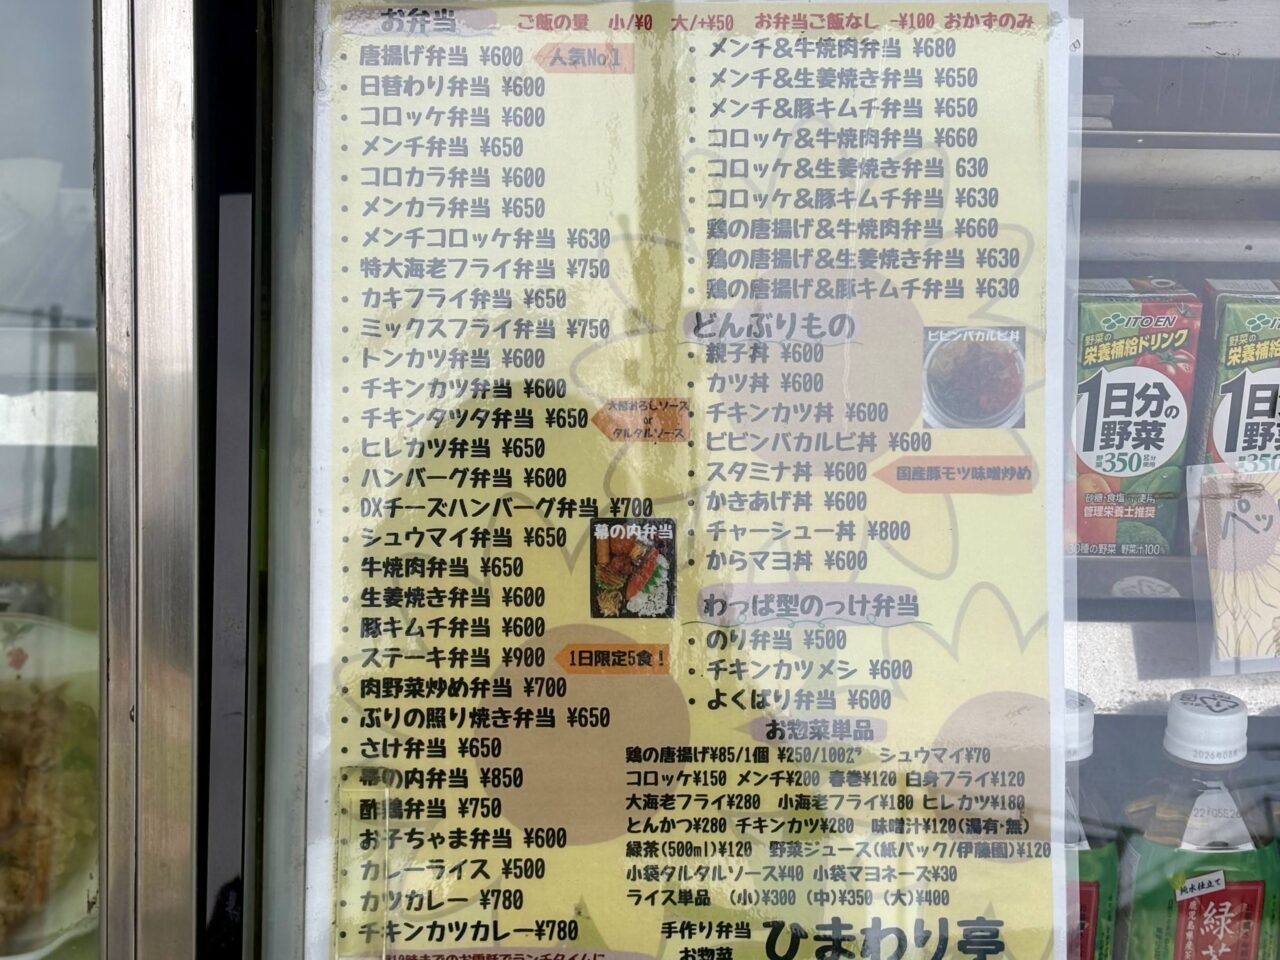 お弁当
ご飯の量 小/¥0 大/+¥50 お弁当ご飯なし -¥100 おかずのみ
・唐揚げ弁当 ¥600
人気No.1
・日替わり弁当 ¥600
・コロッケ弁当 ¥600
・メンチ弁当 ¥650
・コロカラ弁当 ¥600
・メンカラ弁当 ¥650
・メンチコロッケ弁当 ¥630
・特大海老フライ弁当 ¥750
・カキフライ弁当 ¥650
・ミックスフライ弁当 ¥750
・トンカツ弁当 ¥600
・チキンカツ弁当 ¥600
・チキンタツタ弁当 ¥650
大根おろしソース
or
タルタルソース
・ヒレカツ弁当 ¥650
・ハンバーグ弁当 ¥600
・DXチーズハンバーグ弁当 ¥700
・シュウマイ弁当 ¥650
幕の内弁当
・牛焼肉弁当 ¥650
・生姜焼き弁当 ¥600
・豚キムチ弁当 ¥600
・ステーキ弁当 ¥900
1日限定5食！
・肉野菜炒め弁当 ¥700
・ぶりの照り焼き弁当 ¥650
・さけ弁当 ¥650
・幕の内弁当 ¥850
・酢鶏弁当 ¥750
・お子ちゃま弁当 ¥600
・カレーライス ¥500
・カツカレー ¥780
・チキンカツカレー¥780
・メンチ&牛焼肉弁当 ¥680
・メンチ&生姜焼き弁当 ¥650
・メンチ&豚キムチ弁当 ¥650
・コロッケ&牛焼肉弁当 ¥660
・コロッケ&生姜焼き弁当 630
・コロッケ&豚キムチ弁当 ¥630
・鶏の唐揚げ&牛焼肉弁当 ¥660
・鶏の唐揚げ&生姜焼き弁当 ¥630
・鶏の唐揚げ&豚キムチ弁当 ¥630
どんぶりもの
ビビンバカルビ丼
・親子丼 ¥600
・カツ丼 ¥600
・チキンカツ丼 ¥600
・ビビンバカルビ丼 ¥600
・スタミナ丼 ¥600
国産豚モツ味噌炒め
・かきあげ丼 ¥600
・チャーシュー丼 ¥800
・からマヨ丼 ¥600
わっぱ型のっけ弁当
・のり弁当 ¥500
・チキンカツメシ ¥600
・よくばり弁当 ¥600
お惣菜単品
鶏の唐揚げ¥85/1個 ¥250/100㌘ シュウマイ¥70
コロッケ¥150 メンチ¥200 春巻¥120 白身フライ¥120
大海老フライ¥280 小海老フライ¥180 ヒレカツ¥180
とんかつ¥280 チキンカツ¥280 味噌汁¥120(湯有・無)
緑茶(500ml)¥120 野菜ジュース(紙パック/伊藤園)¥120
小袋タルタルソース¥40 小袋マヨネーズ¥30
ライス単品 (小)¥300 (中)¥350 (大)¥400
手作り弁当
お惣菜
ひまわり亭
ITO EN
野菜の
栄養補給ドリンク
1日分の
野菜
350
管理栄養士推奨
30種の野菜 野菜汁100%
ITO EN
純水仕立て
緑茶